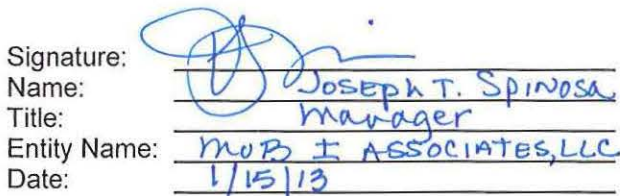 Signature:
Name: Joseph T. Spinosa
Title: Manager
Entity Name: MOB I ASSOCIATES, LLC
Date: 1/15/13